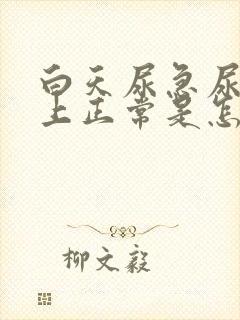 白天尿急尿
上正常是怎
柳文毅